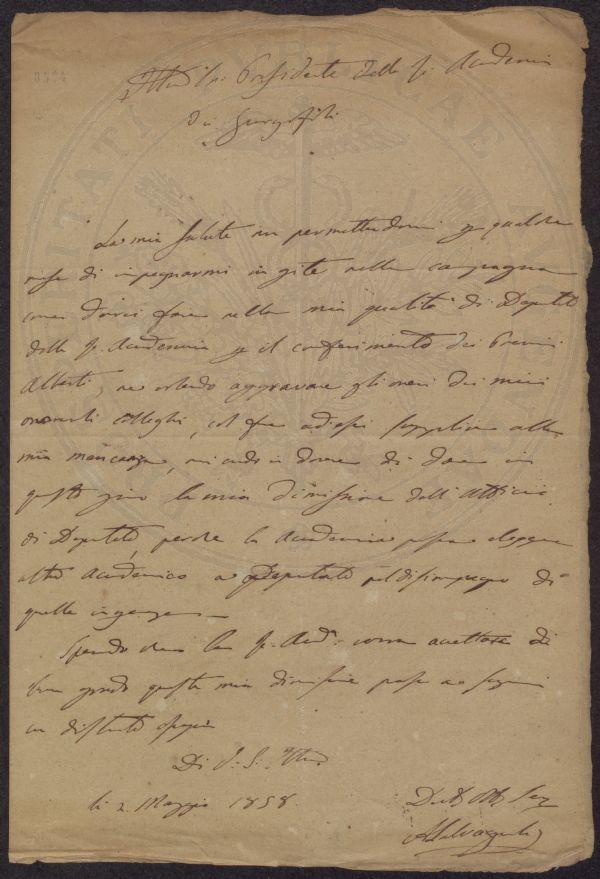 Ill.mo Sig. Presidente della I. Accademia
dei Georgofili
La mia salute non permettendomi per qualche
mese di impegnarmi in gite nella campagna
come dovrei fare nella mia qualità di Deputato
della I. Accademia per il conferimento dei Premi
Alberti, ne volendo aggravare gli oneri dei miei
onorevoli colleghi, col fare ad essi supplire alla
mia mancanza, mi credo in dovere di dare in
questo giorno la mia dimissione dall'Ufficio
di Deputato, perché la Accademia possa eleggere
altro Accademico a Deputato pel disimpegno di
quelle ingerenze
Sperando che la I. Acc.a vorrà accettare di
buon grado questa mia dimissione passo a segnarmi
con distinto ossequio
Di V. S. Ill.ma
li 2 Maggio 1858
A Salvagnoli